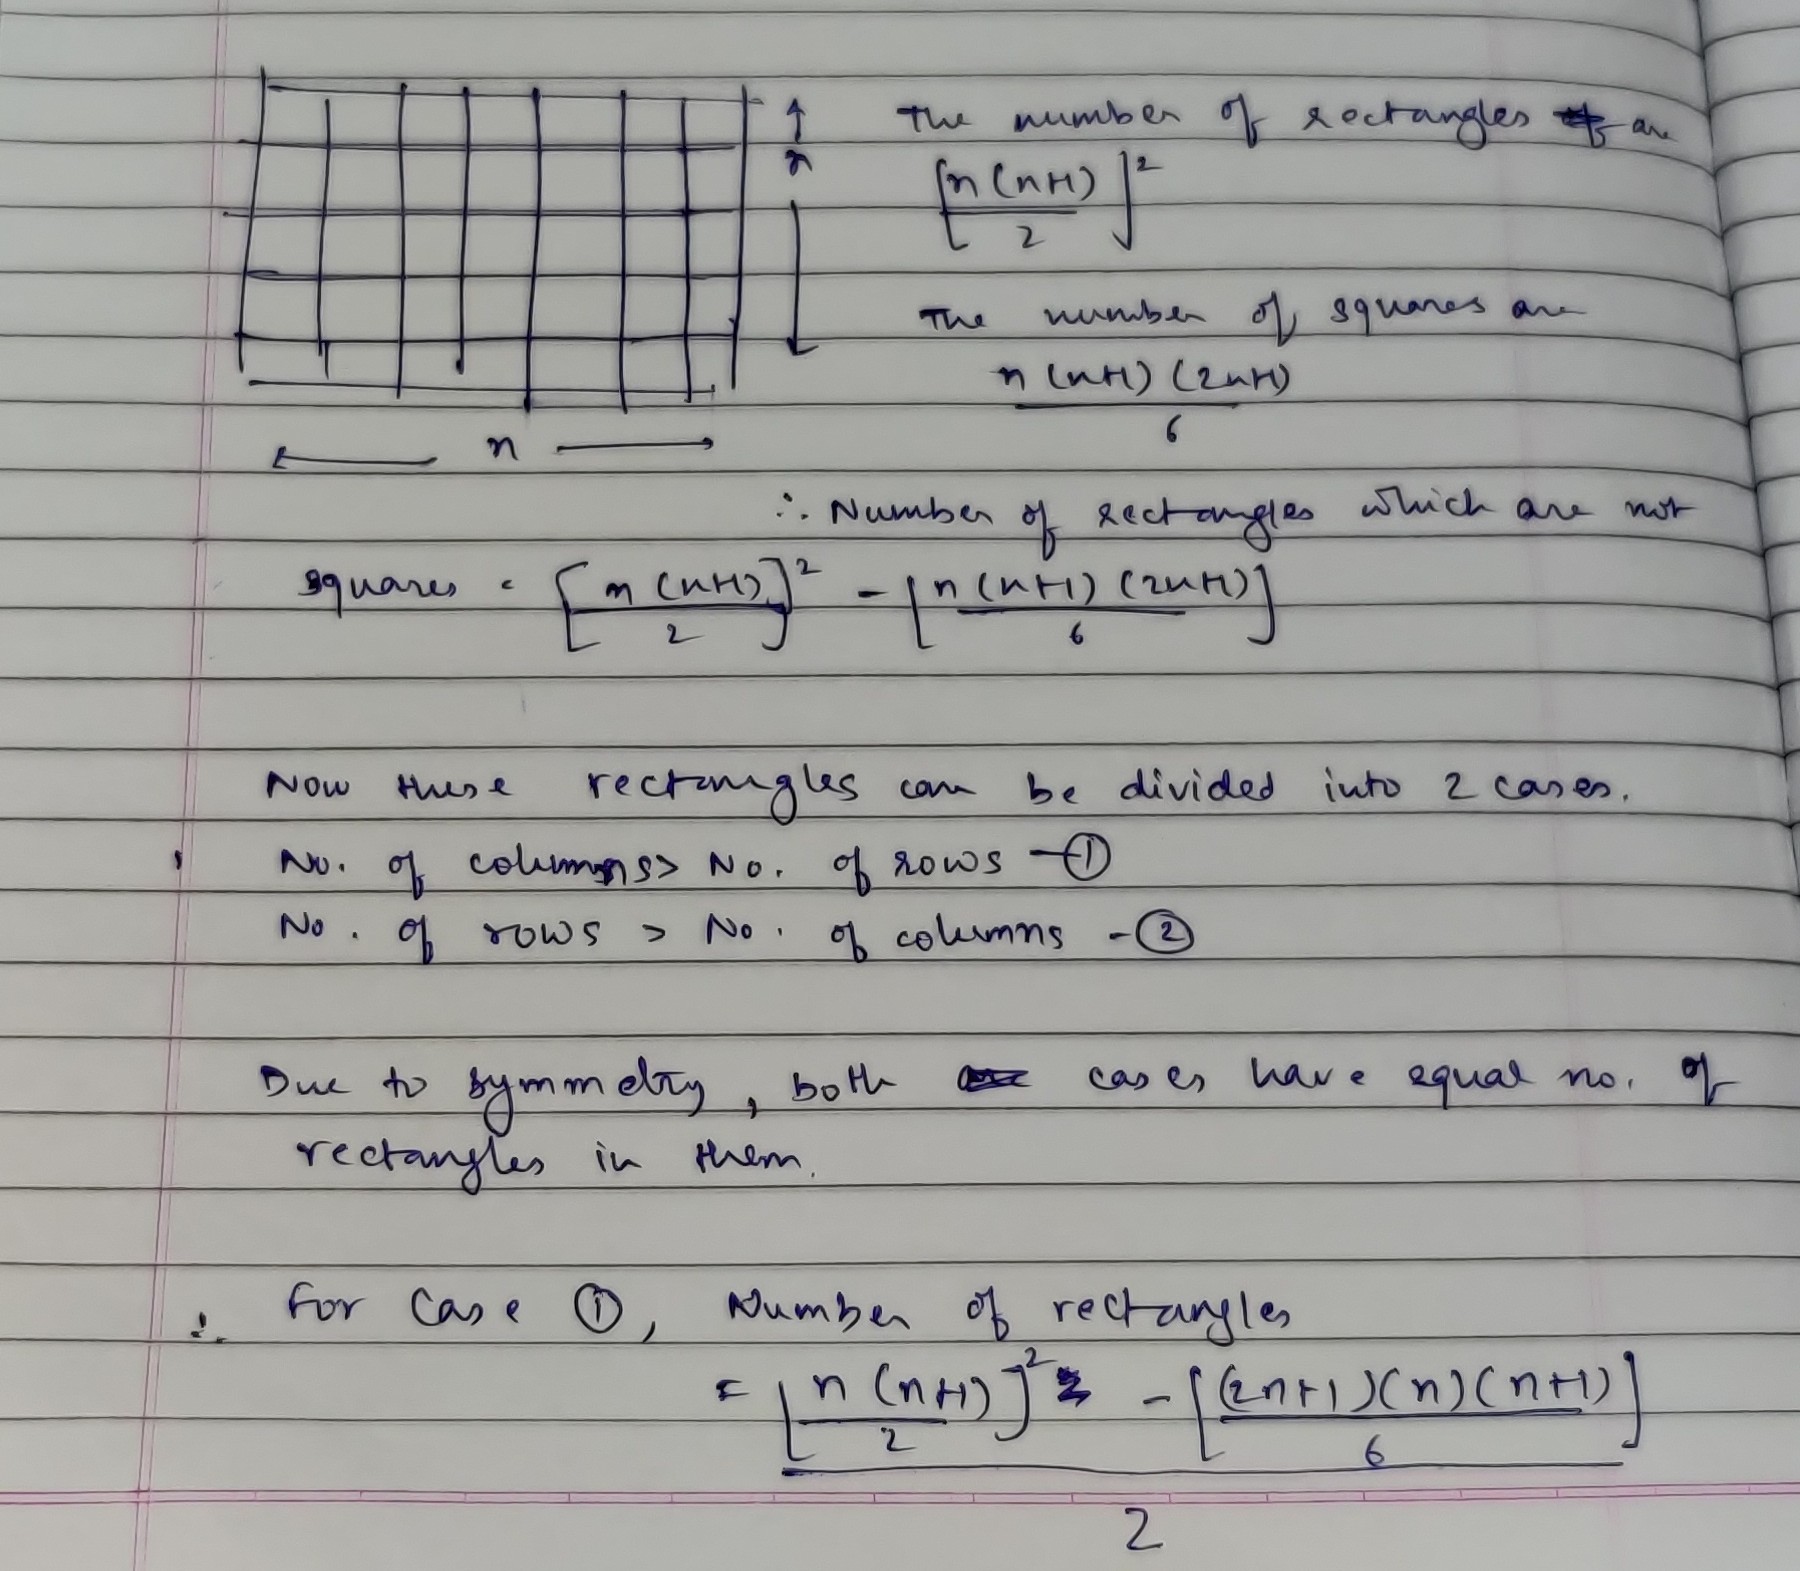 The number of rectangles are
[n(n+1)/2]²
n
The number of squares are
n(n+1)(2n+1)/6
n
∴ Number of rectangles which are not
squares = [n(n+1)/2]² - [n(n+1)(2n+1)/6]
Now these rectangles can be divided into 2 cases.
No. of columns > No. of rows - ①
No. of rows > No. of columns - ②
Due to symmetry, both cases have equal no. of
rectangles in them.
∴ For Case ①, Number of rectangles
= [n(n+1)/2]² - [(2n+1)(n)(n+1)/6]
2